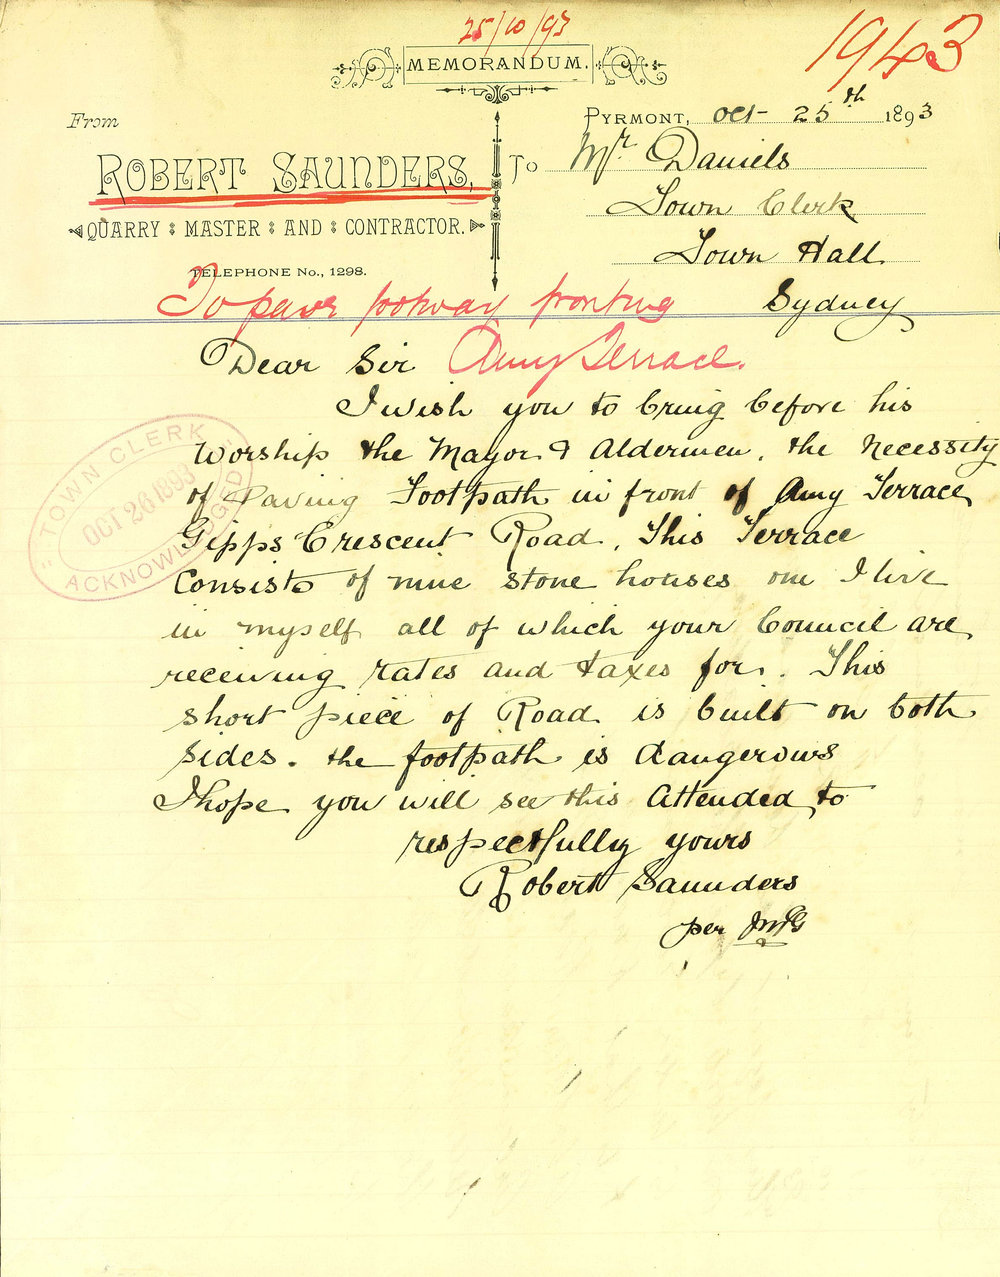 25/10/93
1943
MEMORANDUM.
From
ROBERT SAUNDERS,
QUARRY MASTER AND CONTRACTOR.
TELEPHONE No., 1298.
PYRMONT, Oct 25th 1893
To Mr. Daniels
Town Clerk
Town Hall
Sydney
To pave footway fronting
Amy Terrace.
Dear Sir
I wish you to bring before his
Worship the Mayor & Aldermen, the Necessity
of Paving Footpath in front of Amy Terrace
Gipps Crescent Road, This Terrace
Consists of nine stone houses one I live
in myself all of which your Council are
receiving rates and taxes for. This
short piece of Road is built on both
sides. the footpath is dangerous
I hope you will see this Attended to
respectfully yours
Robert Saunders
per
TOWN CLERK
OCT 26 1893
ACKNOWLEDGED